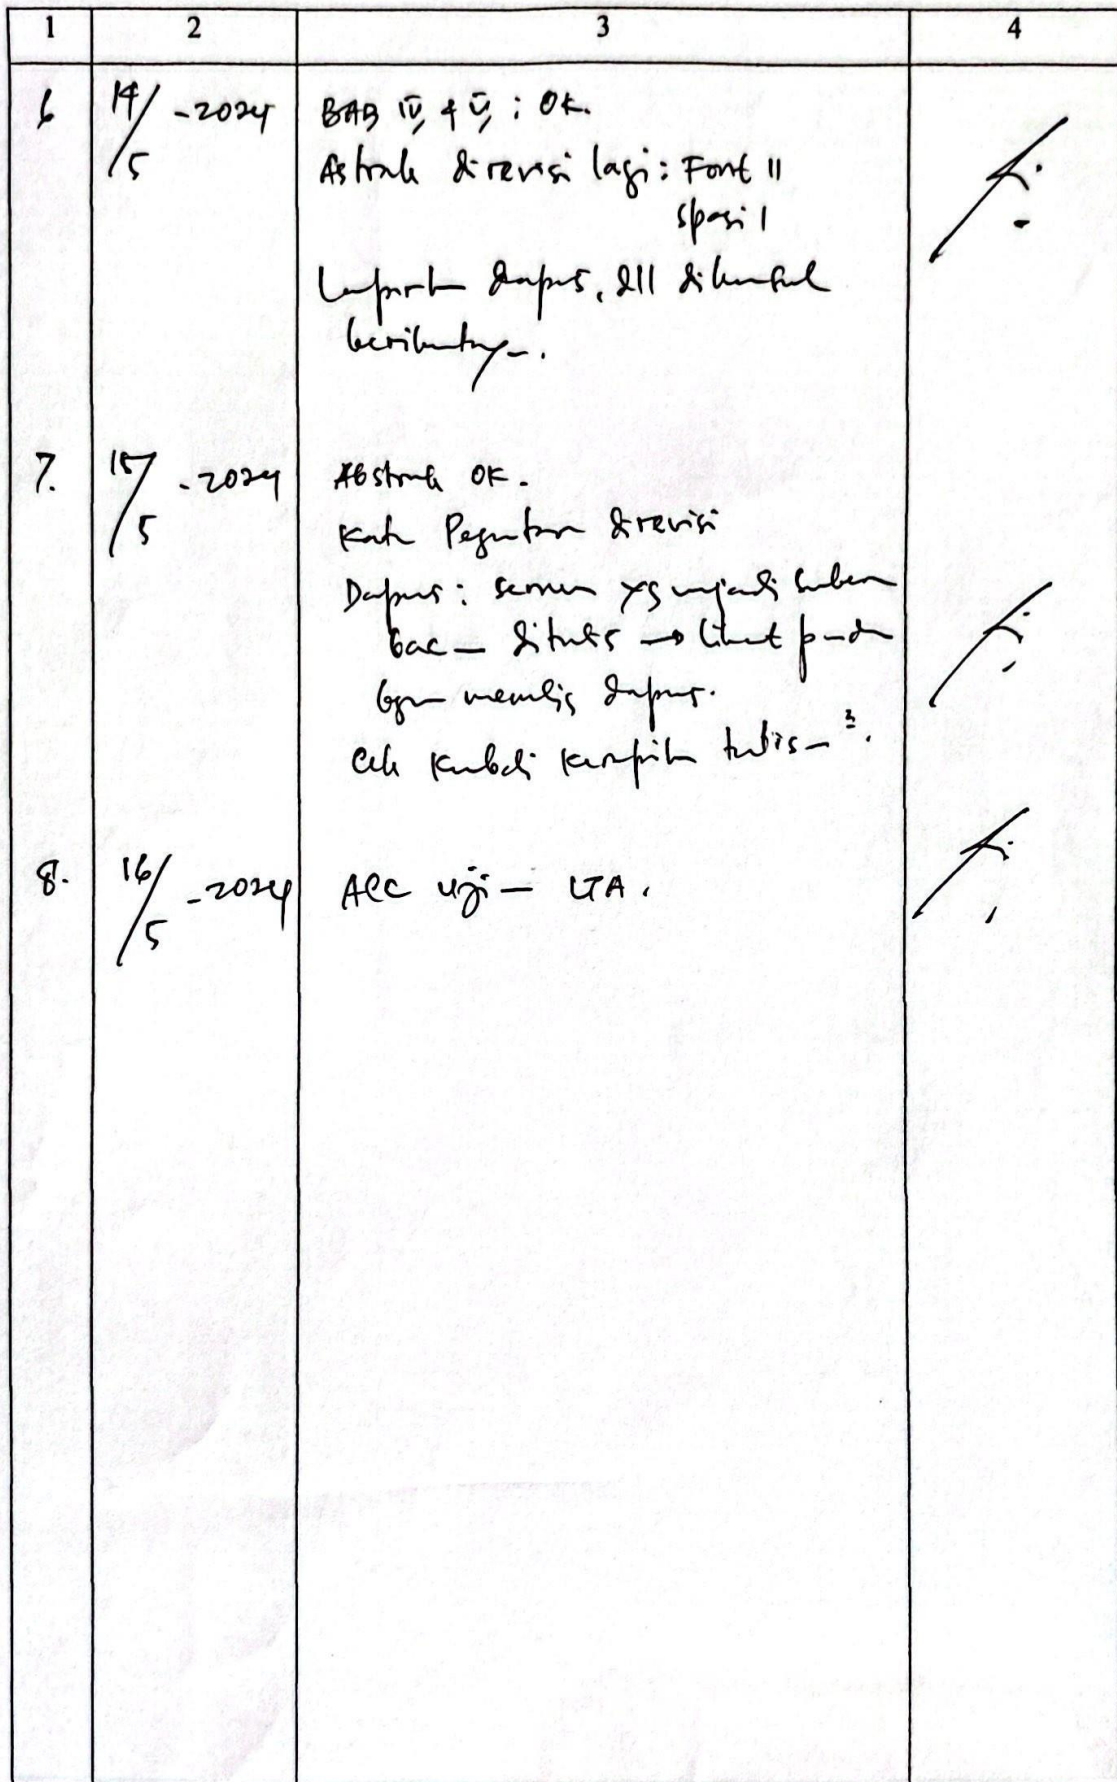 1 2 3 4
6 14/5 - 2024 BAB IV & V : OK.
Astrak direvisi lagi : Font 11
spasi 1
Lampiran dapus, dll dikonsul
berikutnya.
7. 15/5 - 2024 Abstrak OK.
Kata Pegantar direvisi
Dapus : semua yg mjadi sumber
baca ditulis → lihat panduan
bgm menulis dapus.
Cek kembali kerapihan tulisan².
8. 16/5 - 2024 ACC ujian LTA.